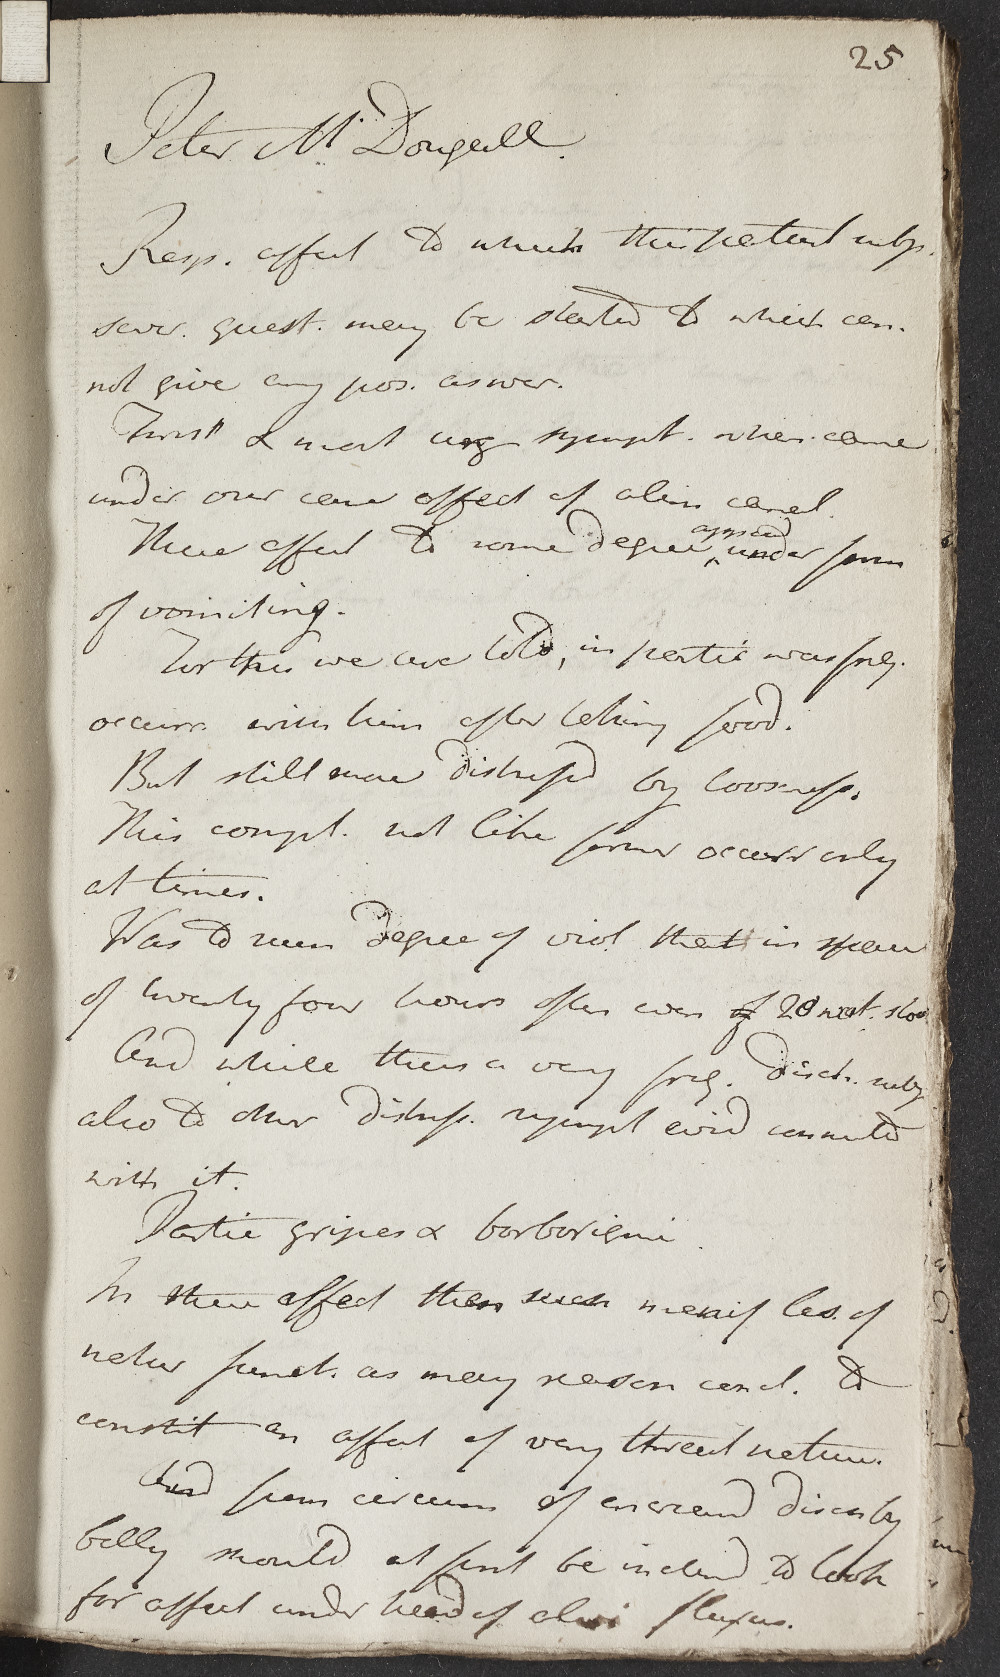 25
Peter McDougall.
Resp. affect to which this patient subj.
sever. quest. may be started to which can
not give any pos. answer.
First & most urg sympt. when came
under our care affect of alim canal.
These affect to some degree appeard under form
of vomiting.
For this we are told, in partic was freq.
occurr. with him after taking food.
But still more distressd by looseness.
This compt. not like former occurr only
at times.
Was to such degree of viol that in space
of twenty four hours often even of 20 nat. stools
And while thus a very freq. disch. subj
also to other distress. sympt evid connected
with it.
Partic gripes & borborigmi.
In these affect then such manif les. of
natur funct. as may reason concl. to
constit an affect of very threat nature.
And from circum of encreasd disch by
belly should at first be inclind to look
for affect under head of alvi fluxus.